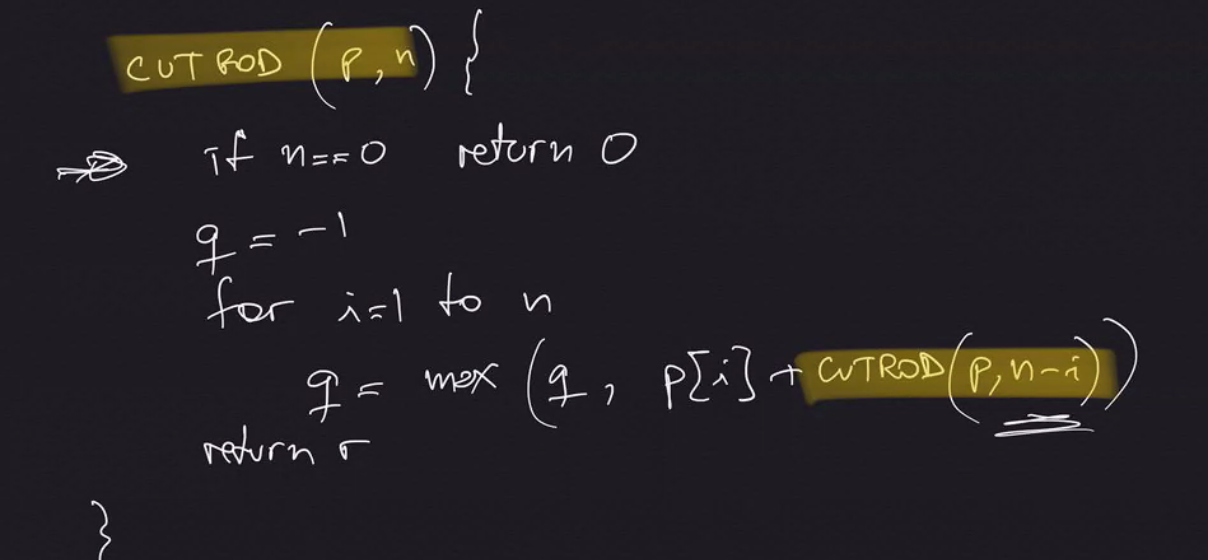 CUTROD (P, n) {
if n==0 return 0
q = -1
for i=1 to n
q = max (q, p[i] + CUTROD(p, n-i))
return r
}